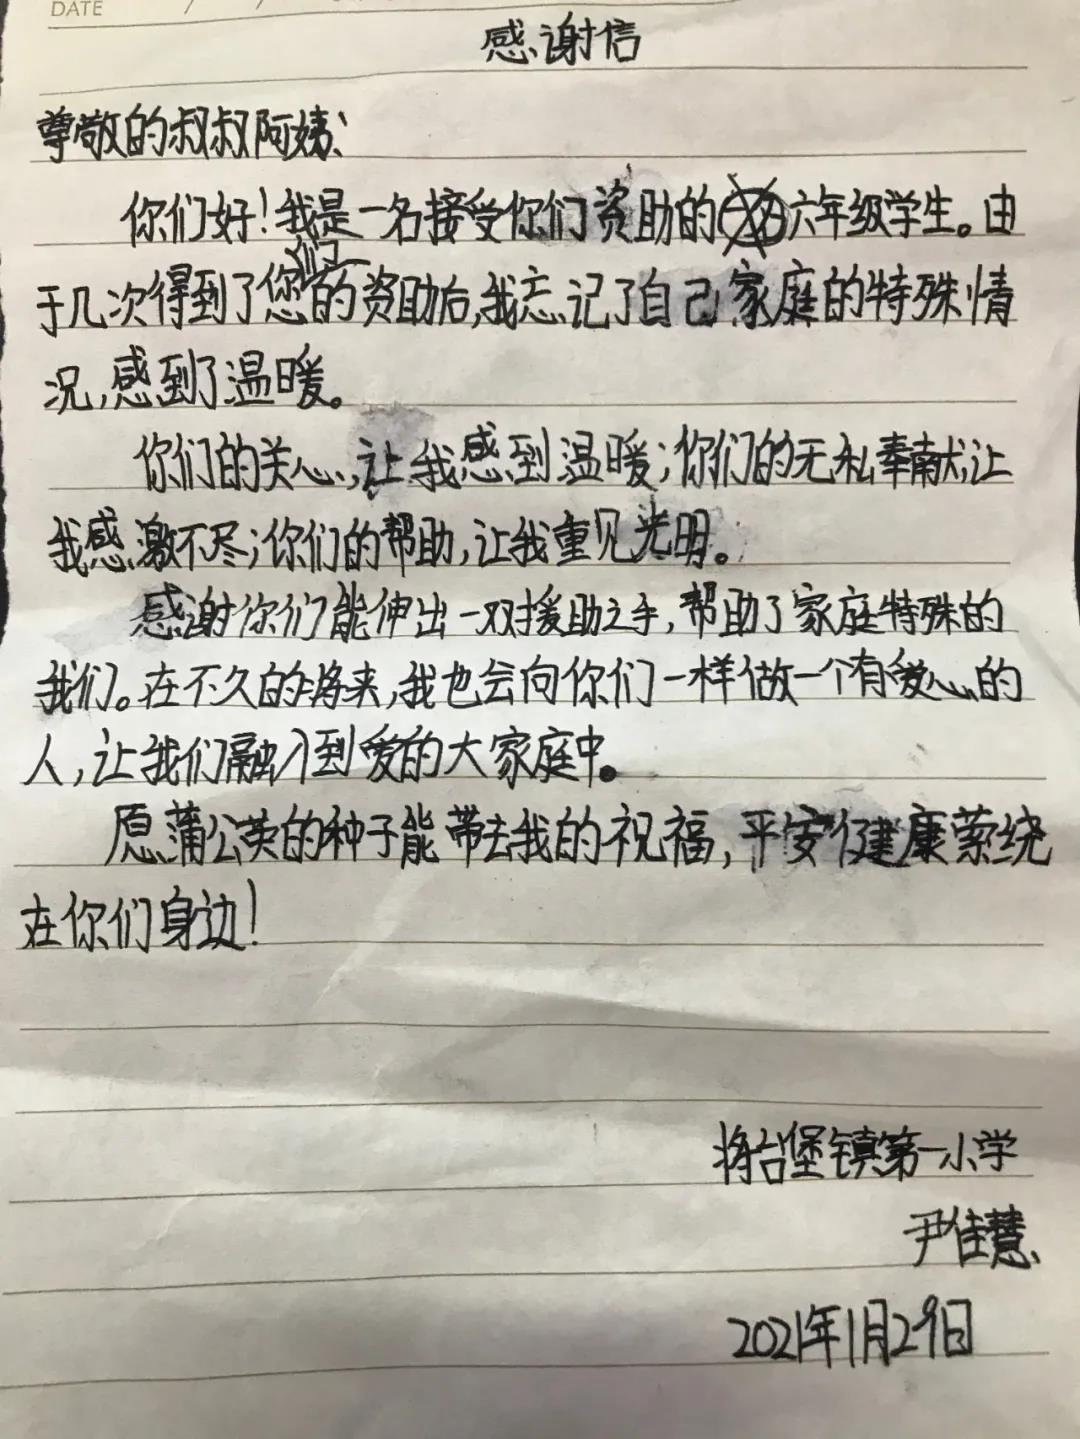 DATE / /
感谢信
尊敬的叔叔阿姨：
你们好！我是一名接受你们资助的六年级学生。由
于几次得到了您们的资助后，我忘记了自己家庭的特殊情
况，感到了温暖。
你们的关心，让我感到温暖；你们的无私奉献，让
我感激不尽；你们的帮助，让我重见光明。
感谢你们能伸出一双援助之手，帮助了家庭特殊的
我们。在不久的将来，我也会向你们一样做一个有爱心的
人，让我们融入到爱的大家庭中。
愿蒲公英的种子能带去我的祝福，平安健康萦绕
在你们身边！
将台堡镇第一小学
尹佳慧
2021年1月29日